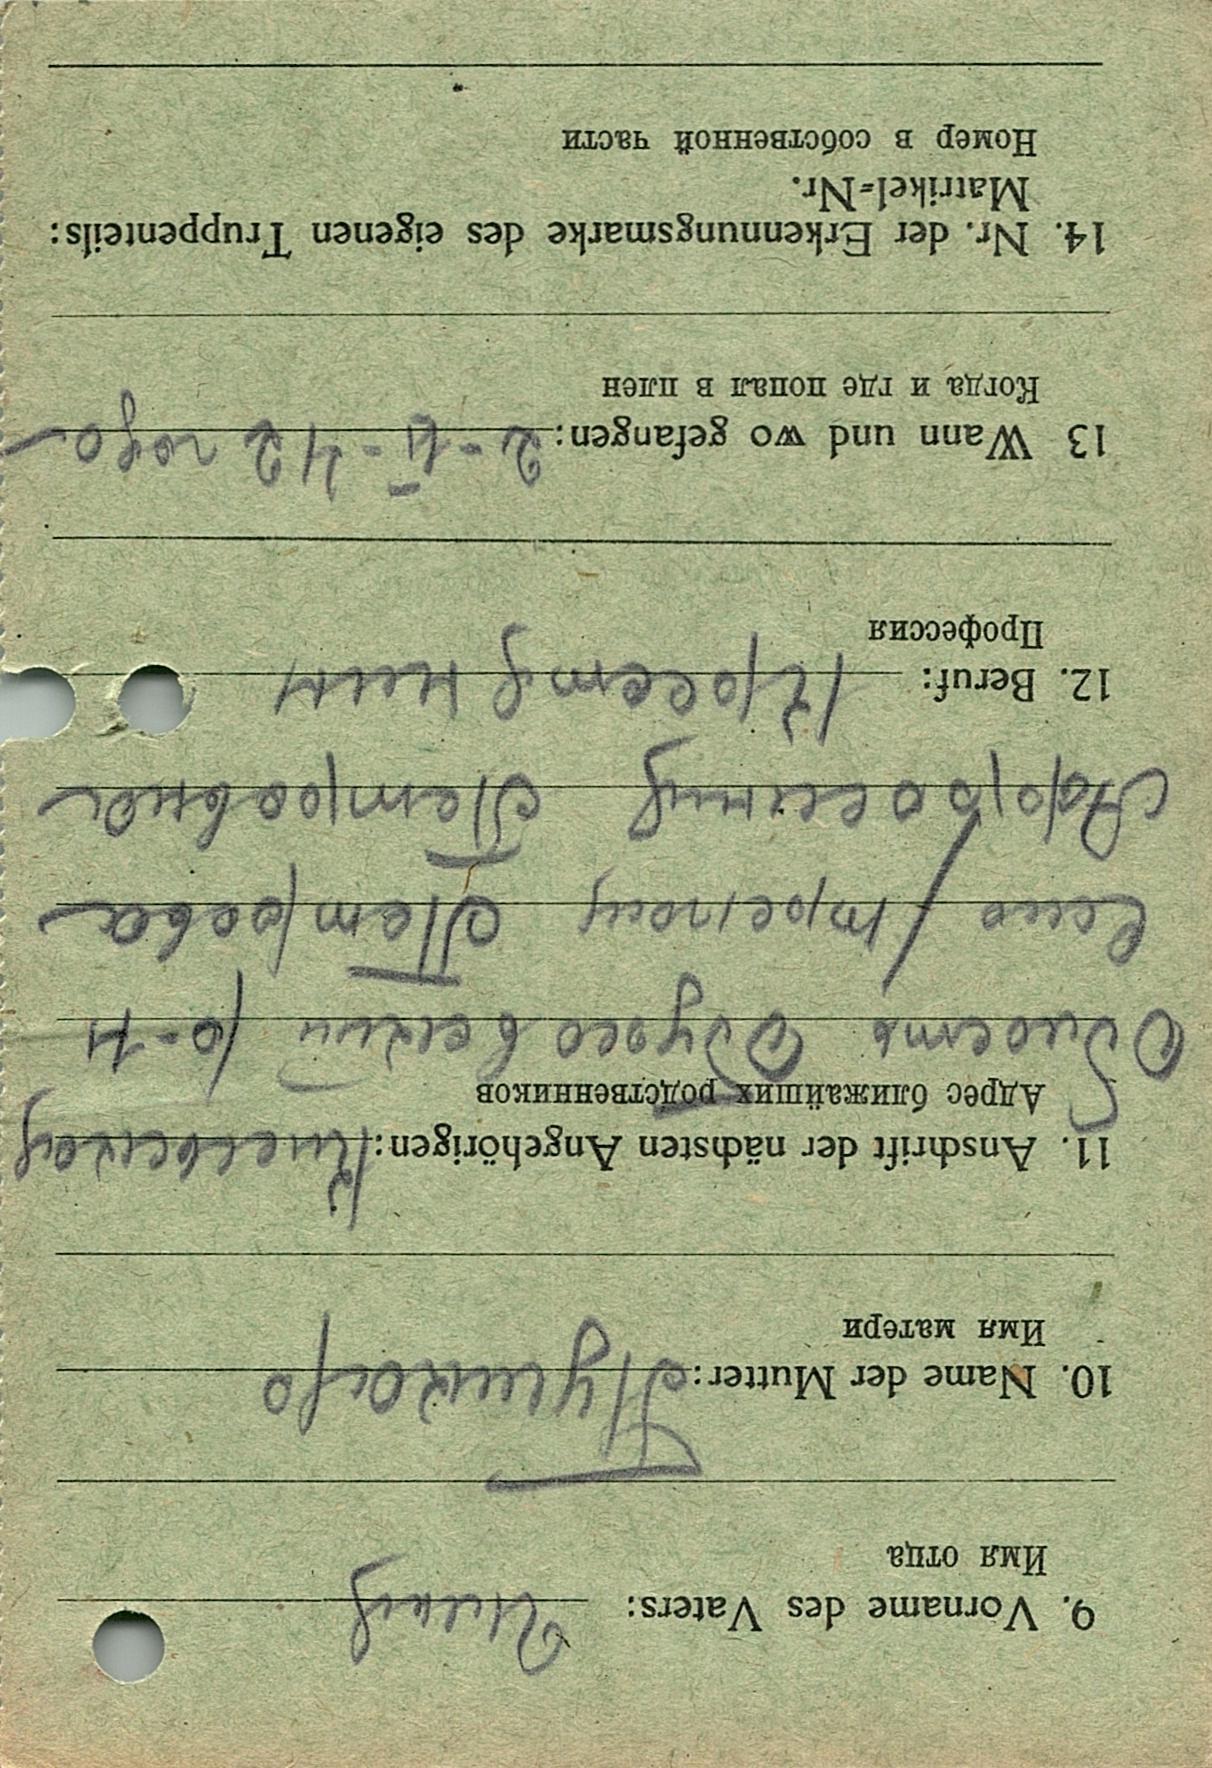 9. Vorname des Vaters:
Имя отца
10. Name der Mutter: Пушкар
Имя матери
11. Anschrift der nächsten Angehörigen: Киевская
Адрес ближайших родственников
Область р-н
Село Петрова
Петровна
12. Beruf:
Профессия
13 Wann und wo gefangen: 42 года
Когда и где попал в плен
14. Nr. der Erkennungsmarke des eigenen Truppenteils:
Matrikel-Nr.
Номер в собственной части